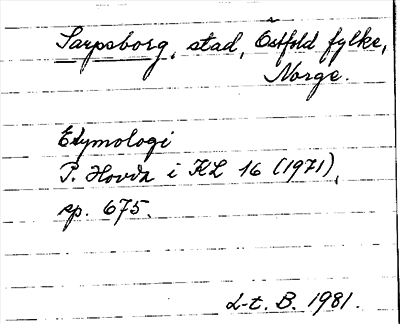 Sarpsborg, stad, Östfold fylke,
Norge.
Etymologi
P. Hovda i KL 16 (1971),
sp. 675.
L-t. B. 1981.